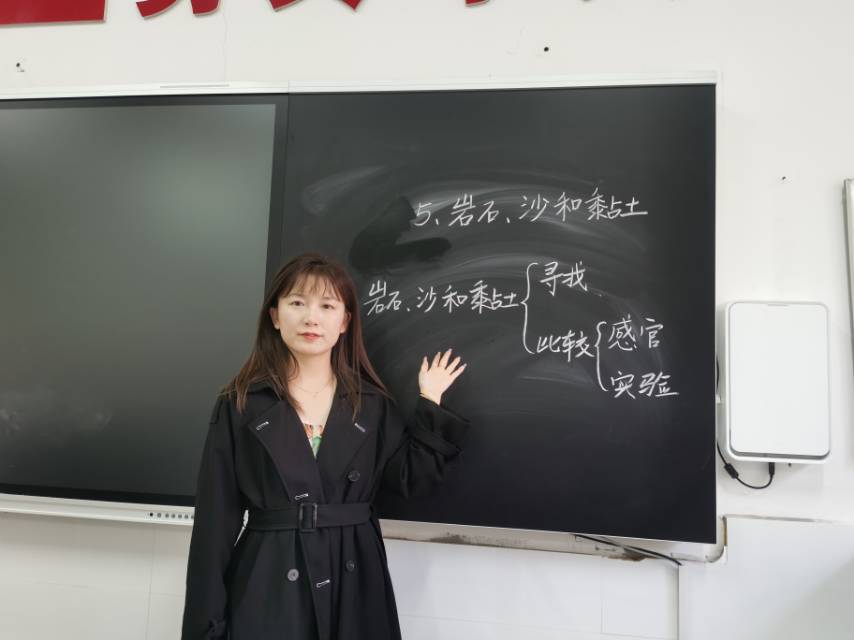 5、岩石、沙和黏土
岩石、沙和黏土
寻找
比较
感官
实验